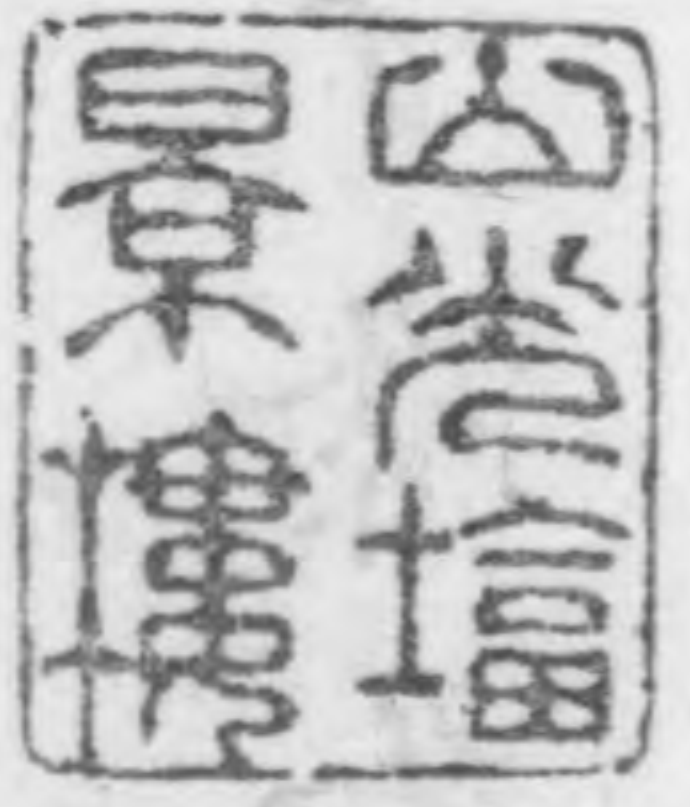 山光
景樓